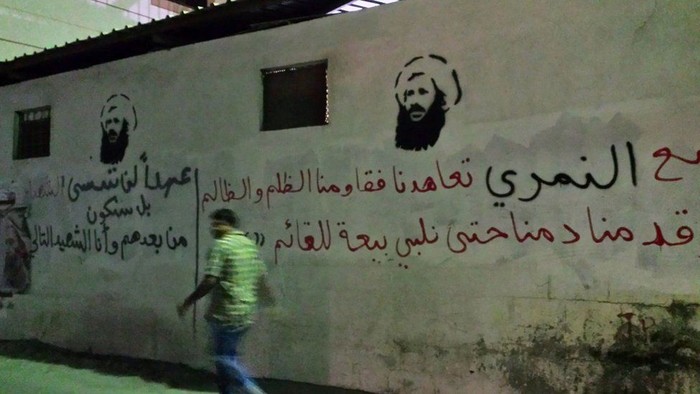 مع النمري تعاهدنا فقاومنا الظلم والظالم
وقد منا دمنا حتى نلبي بيعة للقائم
عهداً لن ننسى الشهداء
بل سنكون
من بعدهم وأنا الشهيد التالي